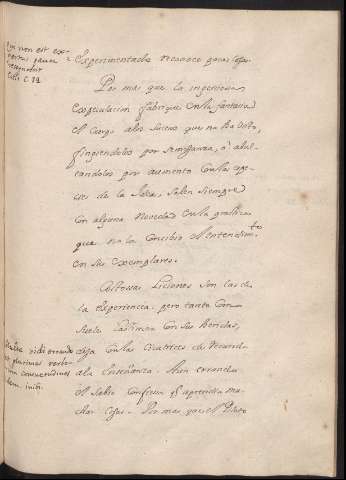 Qui non est ex-
pertus pauca
recognoscit
Eccli. C 34.
Experimentado reconoce pocas cosas.
Por mas que la ingeniosa
especulacion fabrique en la fantasia
el cargo a los sucesos que no ha visto,
fingiendolos por semejanza, ò abul-
tandolos por aumento con las espe-
cies de la Idea, salen siempre
con alguna novedad en la practica
que no la concibio el entendim.to
en sus exemplares.
Costosas liciones son las de
la experiencia, pero tanto con-
suelo lastiman con sus heridas,
Multa vidi errando
et plurimas verbo-
rum consuetudines
dexa con las cicatrices de recuerdo
a la enseñanza. Aun errando
el Sabio confiesa q aprendia mu-
chas cosas. Por mas que el Piloto